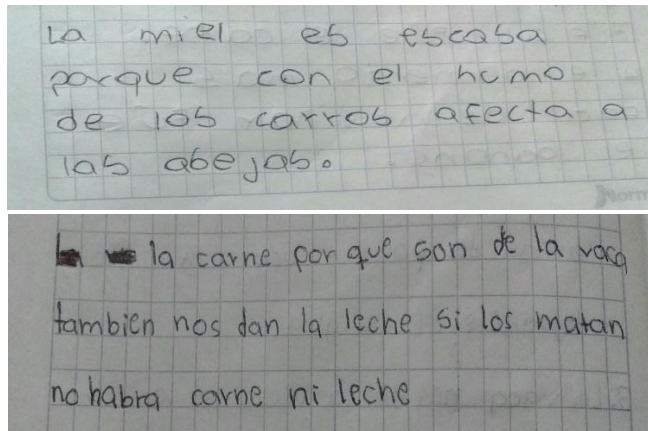 La miel es escasa
porque con el humo
de los carros afecta a
las abejas.
Norm
la carne por que son de la vaca
tambien nos dan la leche si los matan
no habra carne ni leche